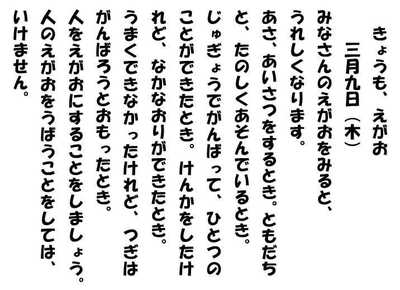 きょうも、えがお
三月九日（木）
みなさんのえがおをみると、
うれしくなります。
あさ、あいさつをするとき。ともだち
と、たのしくあそんでいるとき。
じゅぎょうでがんばって、ひとつの
ことができたとき。けんかをしたけ
れど、なかなおりができたとき。
うまくできなかったけれど、つぎは
がんばろうとおもったとき。
人をえがおにすることをしましょう。
人のえがおをうばうことをしては、
いけません。